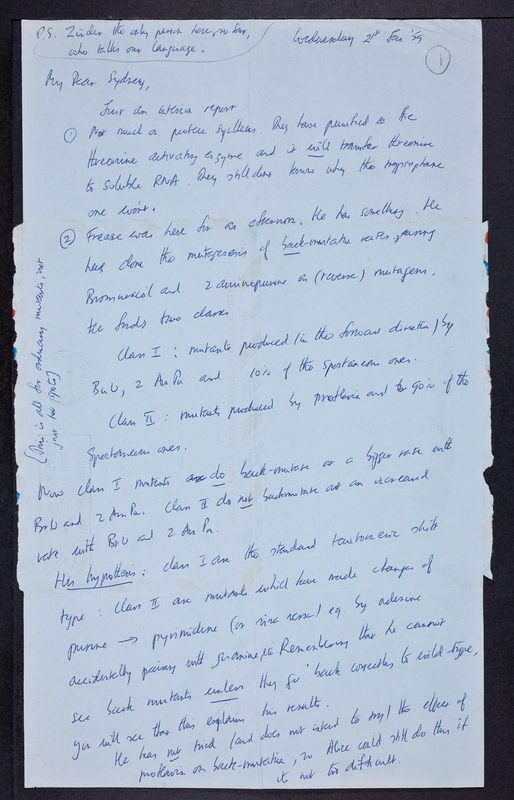 P.S. Zinder the only person here, so far,
who talks our language.
Wednesday 21st Jan '59
1
My Dear Sydney,
Just an interim report
① Not much on protein synthesis. They have purified the
threonine activating enzyme and it will transfer threonine
to soluble RNA. They still don't know why the tryptophane
one won't.
② Freese was here for an afternoon. He has something. He
has done the mutagenesis of back-mutation rates, using
Bromouracil and 2 aminopurine as (reverse) mutagens.
He finds two classes
Class I : mutants produced (in the forward direction) by
BrU, 2 AmPu and 10% of the spontaneous ones.
Class II : mutants produced by proflavin and 90% of the
spontaneous ones.
[This is all for ordinary mutants, not
just hot spots]
Now Class I mutants do back-mutate at a bigger rate with
BrU and 2 AmPu. Class II do not backmutate at an increased
rate with BrU and 2 AmPu.
His hypothesis : Class I are the standard tautomeric shift
type : Class II are mutants which have made changes of
purine → pyrimidine (or vice versa) eg. by adenine
accidentally pairing with guanine, etc. Remembering that he cannot
see back mutants unless they go back correctly to wild-type,
you will see that this explains his results.
He has not tried (and does not intend to try) the effect of
proflavin on back-mutation, so Alice could still do this if
it's not too difficult.